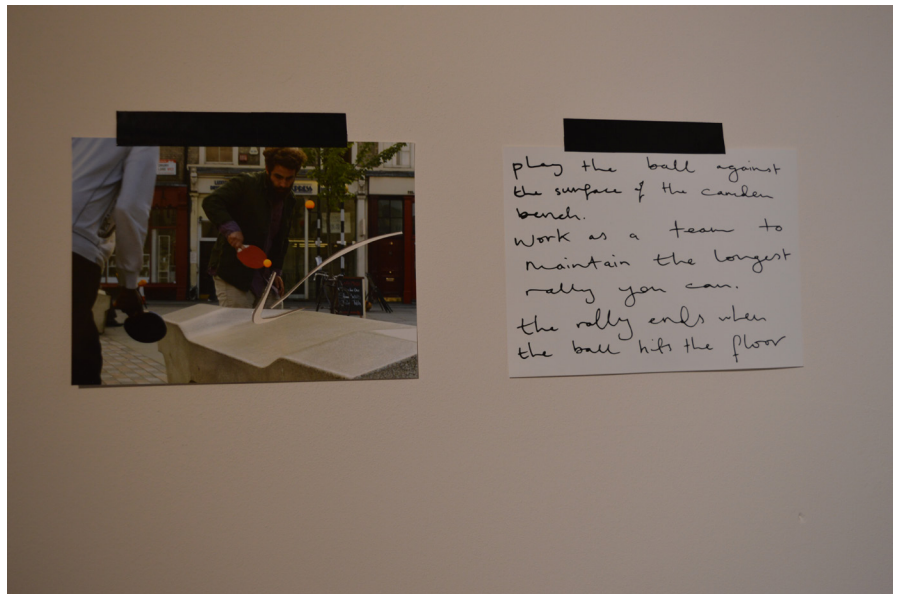 play the ball against
the surface of the camden
bench.
Work as a team to
maintain the longest
rally you can.
the rally ends when
the ball hits the floor